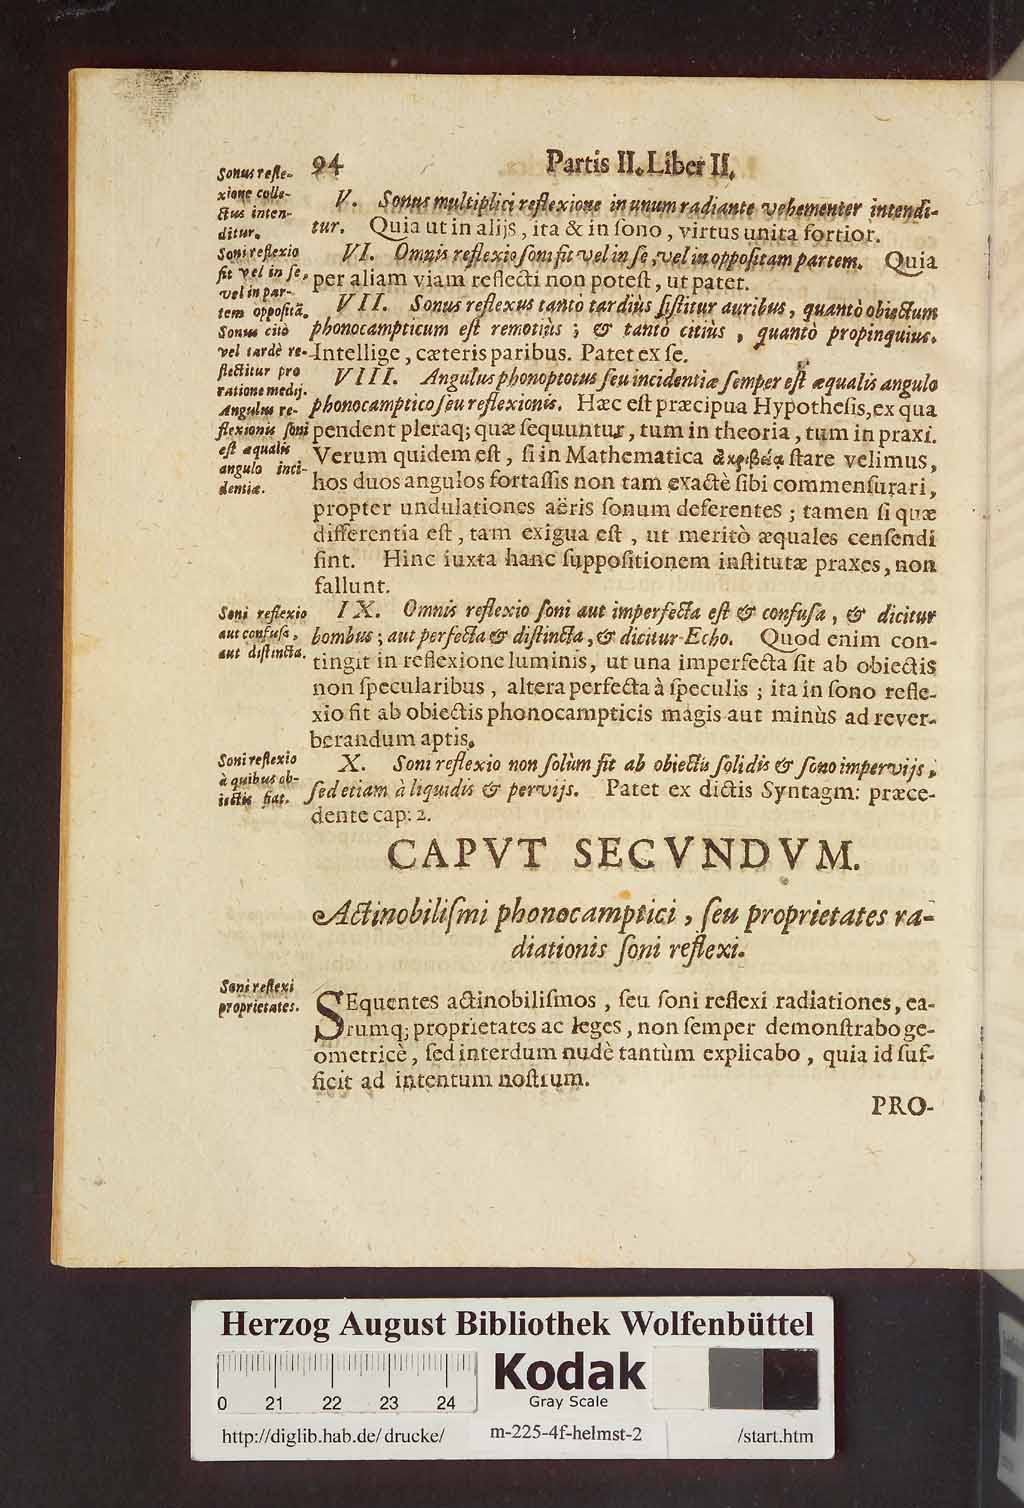 94 Partis II. Liber II.
Sonus refle-
xione colle-
ctus inten-
ditur.
V. Sonus multiplici reflexione in unum radiante vehementer intendi-
tur. Quia ut in alijs, ita & in ſono, virtus unita fortior.
Soni reflexio
fit vel in ſe,
vel in par-
tem oppoſitã.
VI. Omnis reflexio ſoni fit vel in ſe, vel in oppoſitam partem. Quia
per aliam viam reflecti non poteſt, ut patet.
Sonus citò
vel tardè re-
flectitur pro
ratione medij.
VII. Sonus reflexus tantò tardiùs ſiſtitur auribus, quantò obiectum
phonocampticum eſt remotiùs; & tantò citiùs, quantò propinquius.
Intellige, cæteris paribus. Patet ex ſe.
Angulus re-
flexionis ſoni
eſt æqualis
angulo inci-
dentiæ.
VIII. Angulus phonoptotus ſeu incidentiæ ſemper eſt æqualis angulo
phonocamptico ſeu reflexionis. Hæc eſt præcipua Hypotheſis, ex qua
pendent pleraq; quæ ſequuntur, tum in theoria, tum in praxi.
Verum quidem eſt, ſi in Mathematica ἀκριβείᾳ ſtare velimus,
hos duos angulos fortaſſis non tam exactè ſibi commenſurari,
propter undulationes aëris ſonum deferentes; tamen ſi quæ
differentia eſt, tam exigua eſt, ut meritò æquales cenſendi
ſint. Hinc iuxta hanc ſuppoſitionem inſtitutæ praxes, non
fallunt.
Soni reflexio
aut confuſa,
aut diſtincta.
IX. Omnis reflexio ſoni aut imperfecta eſt & confuſa, & dicitur
bombus; aut perfecta & diſtincta, & dicitur Echo. Quod enim con-
tingit in reflexione luminis, ut una imperfecta fit ab obiectis
non ſpecularibus, altera perfecta à ſpeculis; ita in ſono refle-
xio fit ab obiectis phonocampticis magis aut minùs ad rever-
berandum aptis.
Soni reflexio
à quibus ob-
iectis fiat.
X. Soni reflexio non ſolùm fit ab obiectis ſolidis & ſono impervijs,
ſed etiam à liquidis & pervijs. Patet ex dictis Syntagm: præce-
dente cap: 2.
CAPVT SECVNDVM.
Actinobiliſmi phonocamptici, ſeu proprietates ra-
diationis ſoni reflexi.
Soni reflexi
proprietates.
SEquentes actinobiliſmos, ſeu ſoni reflexi radiationes, ea-
rumq; proprietates ac leges, non ſemper demonſtrabo ge-
ometricè, ſed interdum nudè tantùm explicabo, quia id ſuf-
ficit ad intentum noſtrum.
PRO-
Herzog August Bibliothek Wolfenbüttel
0 21 22 23 24
Kodak
Gray Scale
http://diglib.hab.de/drucke/ m-225-4f-helmst-2 /start.htm